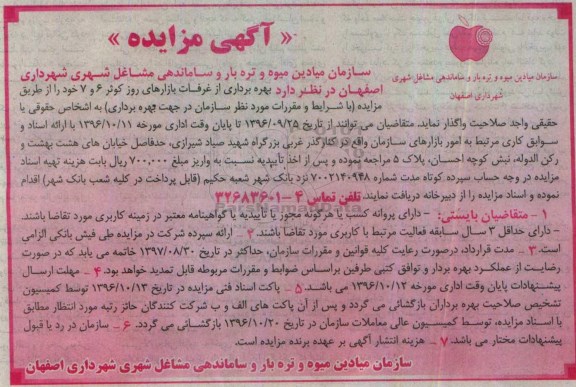 « آگهی مزایده »
سازمان میادین میوه و تره بار و ساماندهی مشاغل شهری
شهرداری اصفهان
سازمان میادین میوه و تره بار و ساماندهی مشاغل شهری شهرداری
اصفهان در نظر دارد بهره برداری از غرفات بازارهای روز کوثر ۶ و ۷ خود را از طریق
مزایده (با شرایط و مقررات مورد نظر سازمان در جهت بهره برداری) به اشخاص حقوقی یا
حقیقی واجد صلاحیت واگذار نماید. متقاضیان می توانند از تاریخ ۱۳۹۶/۰۹/۲۵ تا پایان وقت اداری مورخه ۱۳۹۶/۱۰/۱۱ با ارائه اسناد و
سوابق کاری مرتبط به امور بازارهای سازمان واقع در کنارگذر غربی بزرگراه شهید صیاد شیرازی، حدفاصل خیابان های هشت بهشت و
رکن الدوله، نبش کوچه احسان، پلاک ۵ مراجعه نموده و پس از اخذ تأییدیه نسبت به واریز مبلغ ۷۰۰,۰۰۰ ریال بابت هزینه تهیه اسناد
مزایده در وجه حساب سپرده کوتاه مدت شماره ۷۰۰۲۱۴۰۹۴۸ نزد بانک شهر شعبه حکیم (قابل پرداخت در کلیه شعب بانک شهر) اقدام
نموده و اسناد مزایده را از دبیرخانه دریافت نمایند. تلفن تماس ۴ -۳۲۶۸۳۶۰۱
۱ - متقاضیان بایستی: - دارای پروانه کسب یا هرگونه مجوز یا تأییدیه یا گواهینامه معتبر در زمینه کاربری مورد تقاضا باشند.
- دارای حداقل ۳ سال سابقه فعالیت مرتبط با کاربری مورد تقاضا باشند. ۲ - ارائه سپرده شرکت در مزایده طی فیش بانکی الزامی
است. ۳ - مدت قرارداد، درصورت رعایت کلیه قوانین و مقررات سازمان، حداکثر در تاریخ ۱۳۹۷/۰۸/۳۰ خاتمه می یابد که در صورت
رضایت از عملکرد بهره بردار و توافق کتبی طرفین براساس ضوابط و مقررات مربوطه قابل تمدید خواهد بود. ۴ - مهلت ارسال
پیشنهادات پایان وقت اداری مورخه ۱۳۹۶/۱۰/۱۲ می باشند. ۵ - پاکت اسناد فنی مزایده در تاریخ ۱۳۹۶/۱۰/۱۳ توسط کمیسیون
تشخیص صلاحیت بهره برداران بازگشائی می گردد و پس از آن پاکت های الف و ب شرکت کنندگان حائز رتبه مورد انتظار مطابق
با اسناد مزایده، توسط کمیسیون عالی معاملات سازمان در تاریخ ۱۳۹۶/۱۰/۲۰ بازگشائی می گردد. ۶ - سازمان در رد یا قبول
پیشنهادات مختار می باشد. ۷ - هزینه انتشار آگهی بر عهده برنده مزایده است.
سازمان میادین میوه و تره بار و ساماندهی مشاغل شهری شهرداری اصفهان